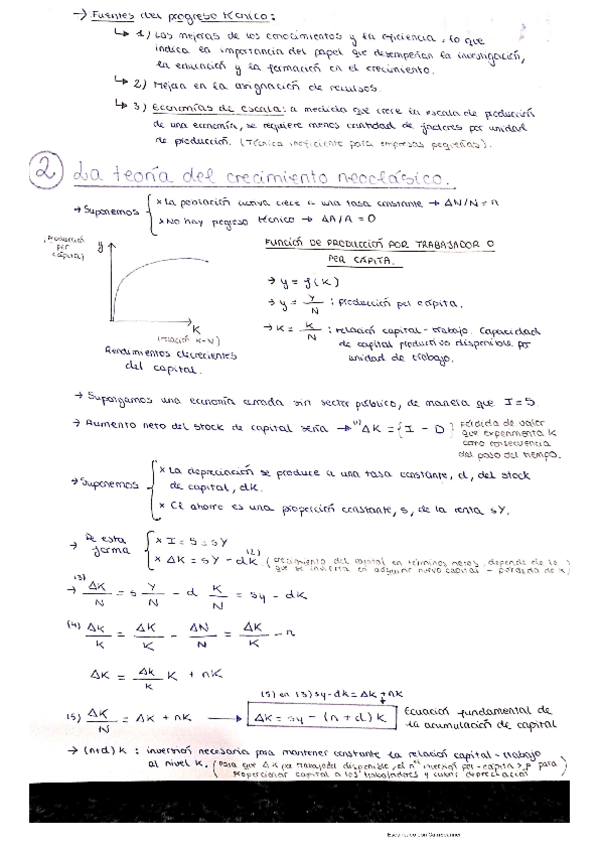 → Fuentes del progreso técnico:
↳ 1) Las mejoras de los conocimientos y la eficiencia, lo que
indica la importancia del papel que desempeñan la investigación,
la educación y la formación en el crecimiento.
↳ 2) Mejora en la asignación de recursos.
↳ 3) Economías de escala: a medida que crece la escala de producción
de una economía, se requiere menos cantidad de factores por unidad
de producción. (Técnica ineficiente para empresas pequeñas).
② La teoría del crecimiento neoclásico.
→ Suponemos { * La población activa crece a una tasa constante → ΔN/N = n
* No hay pogreso técnico → ΔA/A = 0
(Producción per cápita) y
K (relación K-N)
Rendimientos decrecientes
del capital.
FUNCIÓN DE PRODUCCIÓN POR TRABAJADOR O
PER CÁPITA.
→ y = f(K)
→ y = Y/N : producción per cápita.
→ K = K/N : relación capital-trabajo. Capacidad
de capital productivo disponible por
unidad de trabajo.
→ Supongamos una economía cerrada sin sector público, de manera que I = S.
→ Aumento neto del stock de capital sería → (1) ΔK = {I - D} pérdida de valor
que experimenta K
como consecuencia
del paso del tiempo.
→ Suponemos { * La depreciación se produce a una tasa constante, d, del stock
de capital, dK.
* El ahorro es una proporción constante, s, de la renta sY.
→ De esta forma { * I = S = sY
* ΔK = sY - dK (2) (crecimiento del capital en términos netos, depende de lo
que se invierta en adquirir nuevo capital - pérdida de K)
(3) → ΔK/N = s Y/N - d K/N = sy - dK
(4) ΔK/K = ΔK/K - ΔN/N = ΔK/K - n
ΔK = Δk/k K + nK
(5) en (3) sy - dk = ΔK + nK
(5) ΔK/N = ΔK + nK → ΔK = sy - (n + d) K Ecuación fundamental de
la acumulación de capital
→ (n+d) k : inversión necesaria para mantener constante la relación capital-trabajo
al nivel K. (Para que ΔK per trabajador disponible, el inversión per-cápita > para
proporcionar capital a los trabajadores y cubrir depreciación